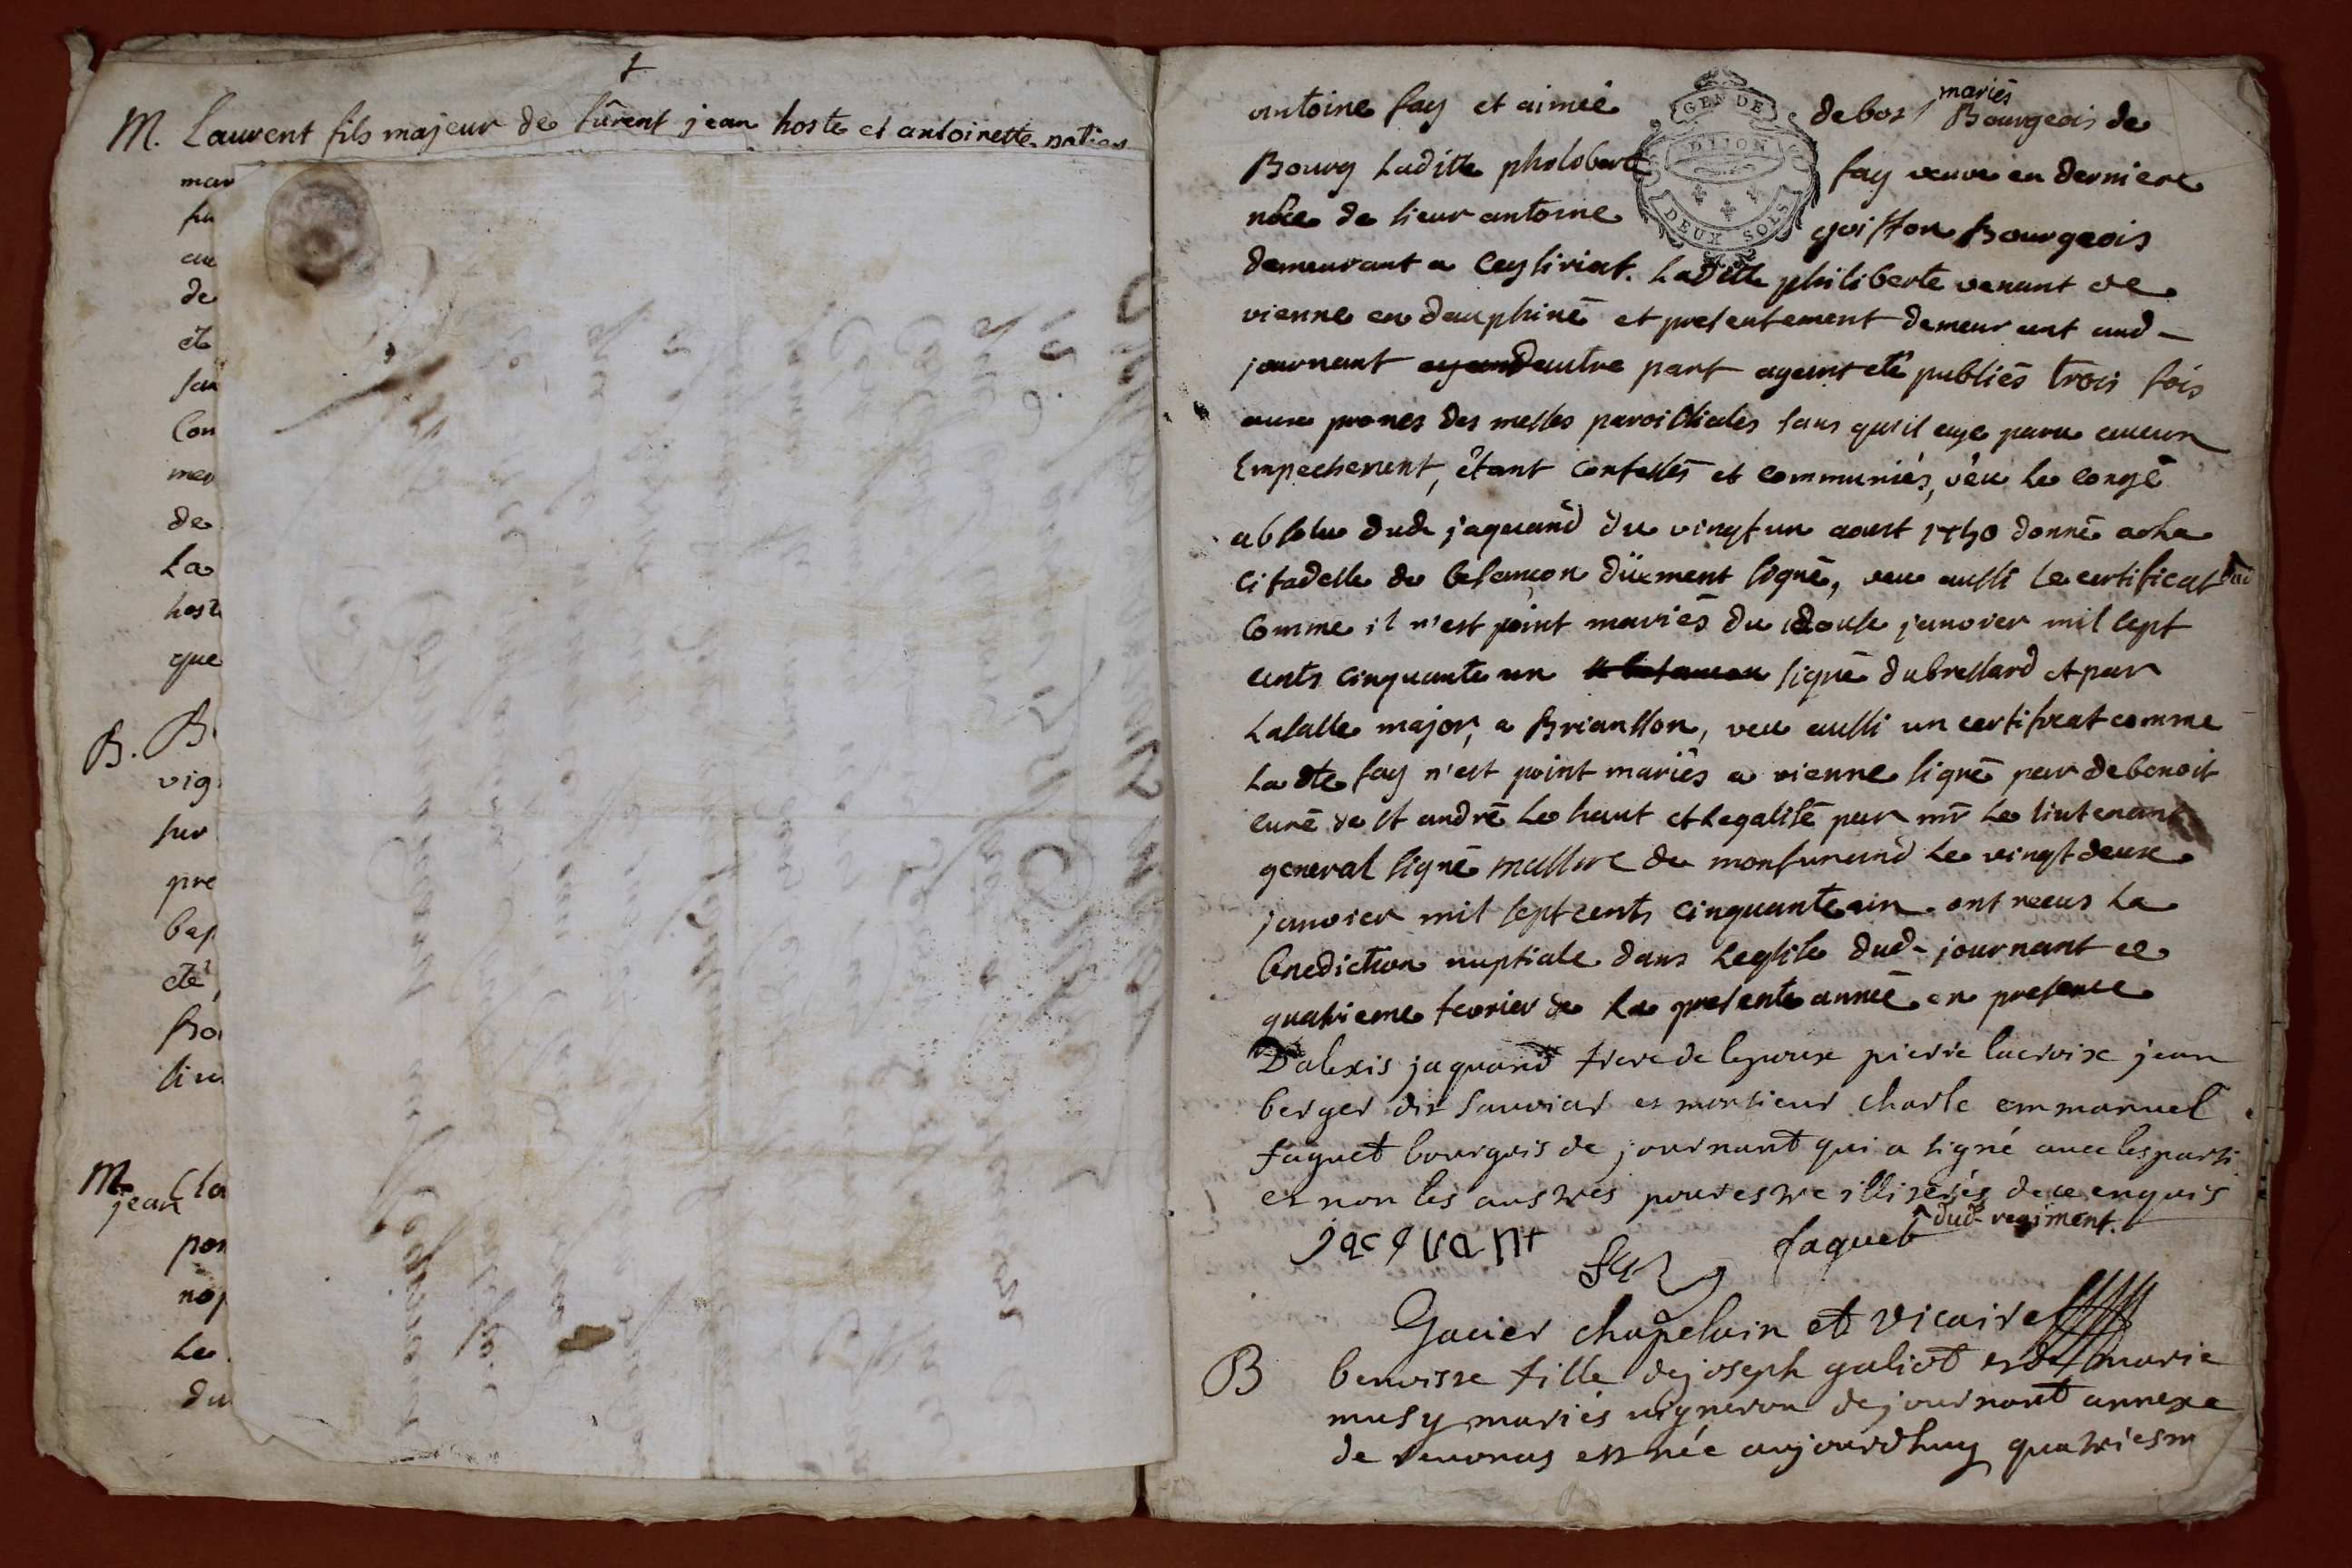 M. Laurent fils majeur de lûrent jean hoste et antoinette
mar
fu
cu
de
et
sai
Con
mes
de
La
host
que
B. B
vig
sur
pre
bap
eté
Bo
lieu
M. Cla
jean
por
nop
Le
du
antoine fay et aimée debost mariés Bourgeois de
Bourg Laditte philiberte fay veuve en derniere
noce de sieur antoine goiffon Bourgeois
demeurant a Ceysiriat. Laditte philiberte venant de
vienne en dauphiné et presentement demeurant aud
journant dautre part ayant eté publiés trois fois
aux prones des messes paroissiales sans qu'il aye paru aucun
Empechement, étant confessés et communiés, veu Le congé
absolu dud jaquand du vingt un aoust 1750 donné a La
Citadelle de besançon düement signé, veu aussi Le certificat
Comme il n'est point mariés du douse janvier mil sept
cents cinquante un signé dubressard et par
Lasalle major, a Briansson, veu aussi un certificat comme
La dte fay n'est point mariés a vienne signé par debenoit
curé de st andré Le haut et Legalisé par mr Le lieutenant
general signé de Le vingt deux
janvier mil sept cents cinquante un ont receus La
benediction nuptiale dans Leglise dud journant ce
quatrieme fevrier de La presente année en presence
D'alexis jaquand frere de lepoux pierre lacroix jean
berger dit sauviar et monsieur charle emmanuel
faguet bourgois de journant qui a signé avec les parti
et non les austres pour estre illiterés de ce enquis
^ dud regiment.
jacquant fay faguet
Gacier chapelain et vicaire
B benoisse fille de joseph galiot et de marie
musy mariés vigneron de journant annexe
de revonas est née aujourdhuy quatriesm
GEN DE
DIJON
DEUX SOLS